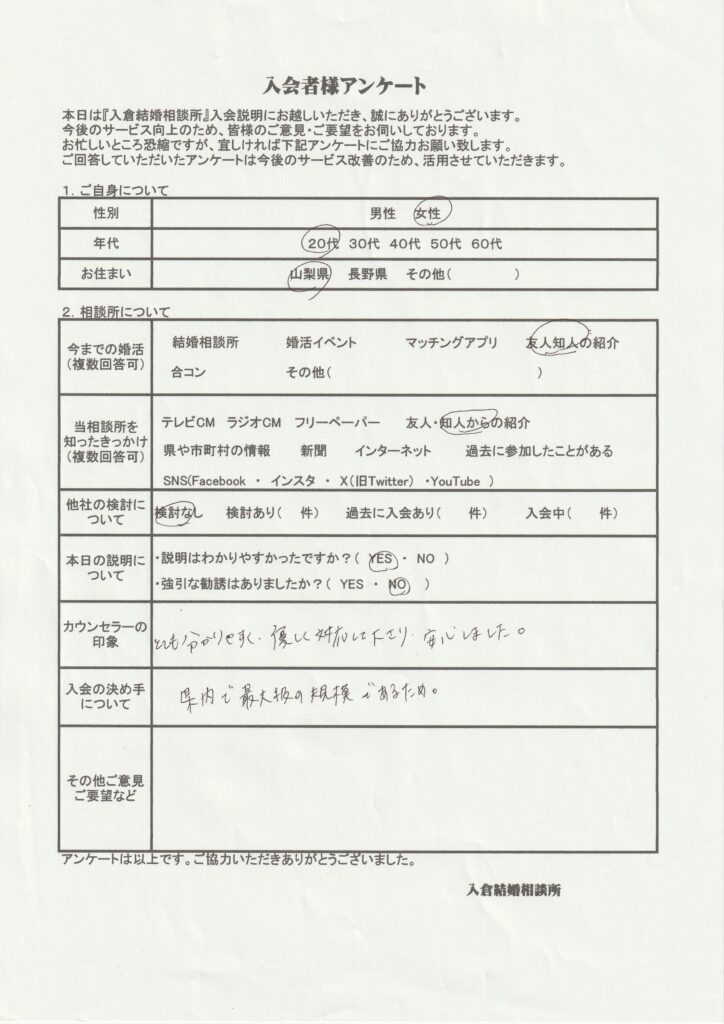 入会者様アンケート
本日は『入倉結婚相談所』入会説明にお越しいただき、誠にありがとうございます。
今後のサービス向上のため、皆様のご意見・ご要望をお伺いしております。
お忙しいところ恐縮ですが、宜しければ下記アンケートにご協力お願い致します。
ご回答していただいたアンケートは今後のサービス改善のため、活用させていただきます。
1．ご自身について
性別 男性 女性
年代 20代 30代 40代 50代 60代
お住まい 山梨県 長野県 その他( )
2．相談所について
今までの婚活
(複数回答可)
結婚相談所 婚活イベント マッチングアプリ 友人知人の紹介
合コン その他( )
当相談所を
知ったきっかけ
(複数回答可)
テレビCM ラジオCM フリーペーパー 友人・知人からの紹介
県や市町村の情報 新聞 インターネット 過去に参加したことがある
SNS(Facebook ・ インスタ ・ X(旧Twitter) ・YouTube )
他社の検討に
ついて
検討なし 検討あり( 件) 過去に入会あり( 件) 入会中( 件)
本日の説明に
ついて
・説明はわかりやすかったですか？( YES ・ NO )
・強引な勧誘はありましたか？( YES ・ NO )
カウンセラーの
印象
とても分かりやすく、優しく対応して下さり、安心しました。
入会の決め手
について
県内で最大級の規模であるため。
その他ご意見
ご要望など
アンケートは以上です。ご協力いただきありがとうございました。
入倉結婚相談所